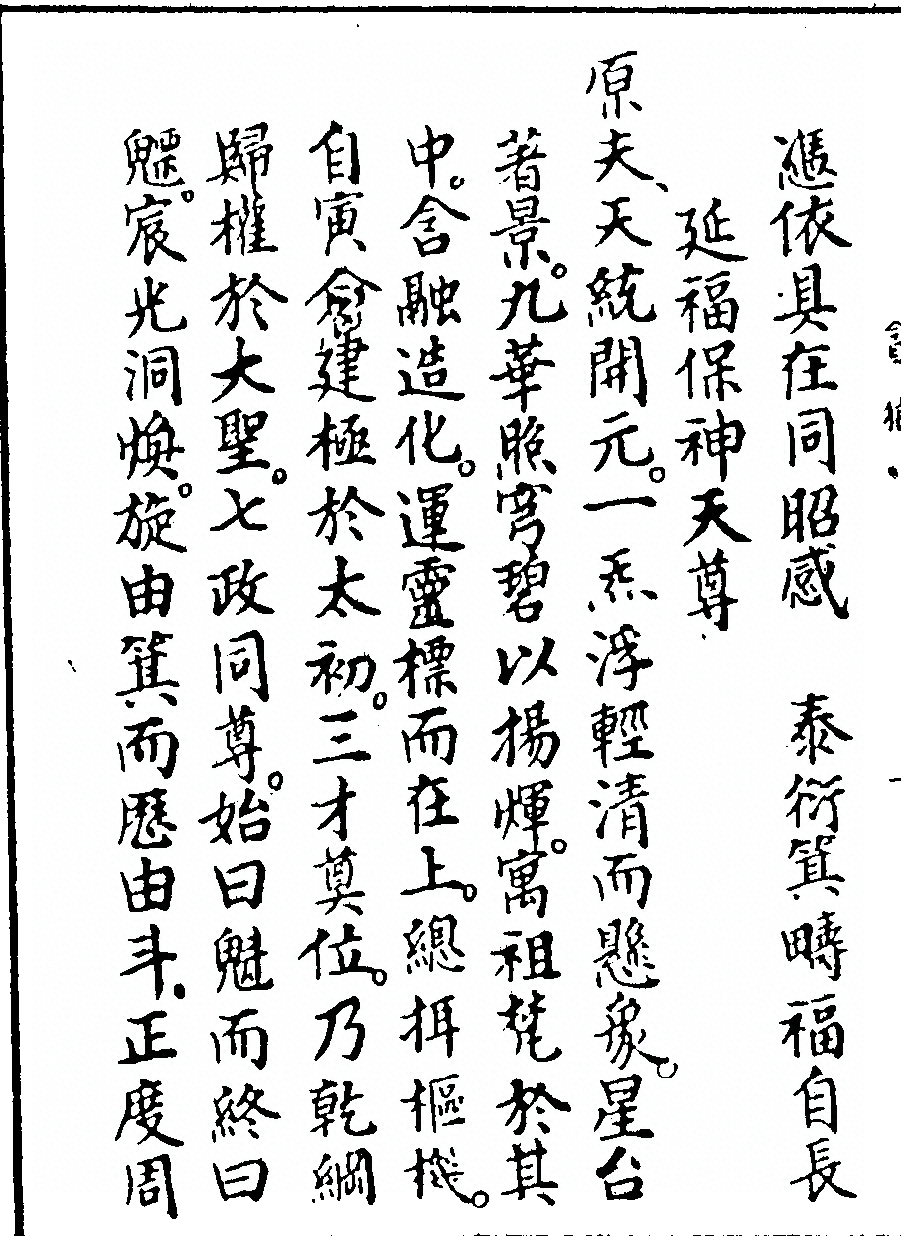 貪狼
憑依具在同昭感　泰衍箕疇福自長
延福保神天尊
原夫、天統開元。一炁浮輕清而懸象。星台
著景。九華照穹碧以揚輝。寓祖梵於其
中。含融造化。運靈標而在上。總持樞機。
自寅會建極於太初。三才奠位。乃乾綱
歸權於大聖。七政同尊。始曰魁而終曰
魒。宸光洞煥。旋由箕而歷由斗。正度周